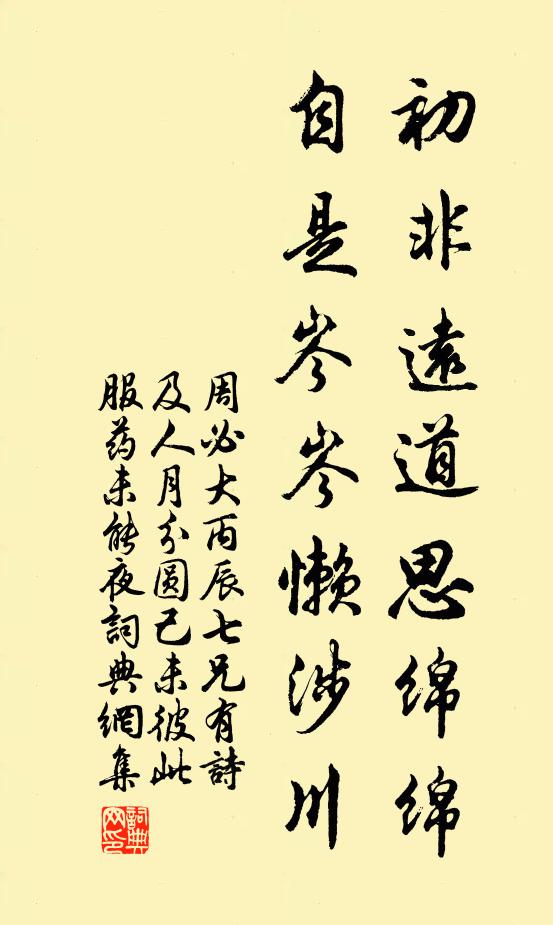 初非遠道思綿綿
自是岑岑懶涉川
周必大丙辰七兄有詩
及人月分圓己未彼此
服药未能夜詞典網集
詞典网印